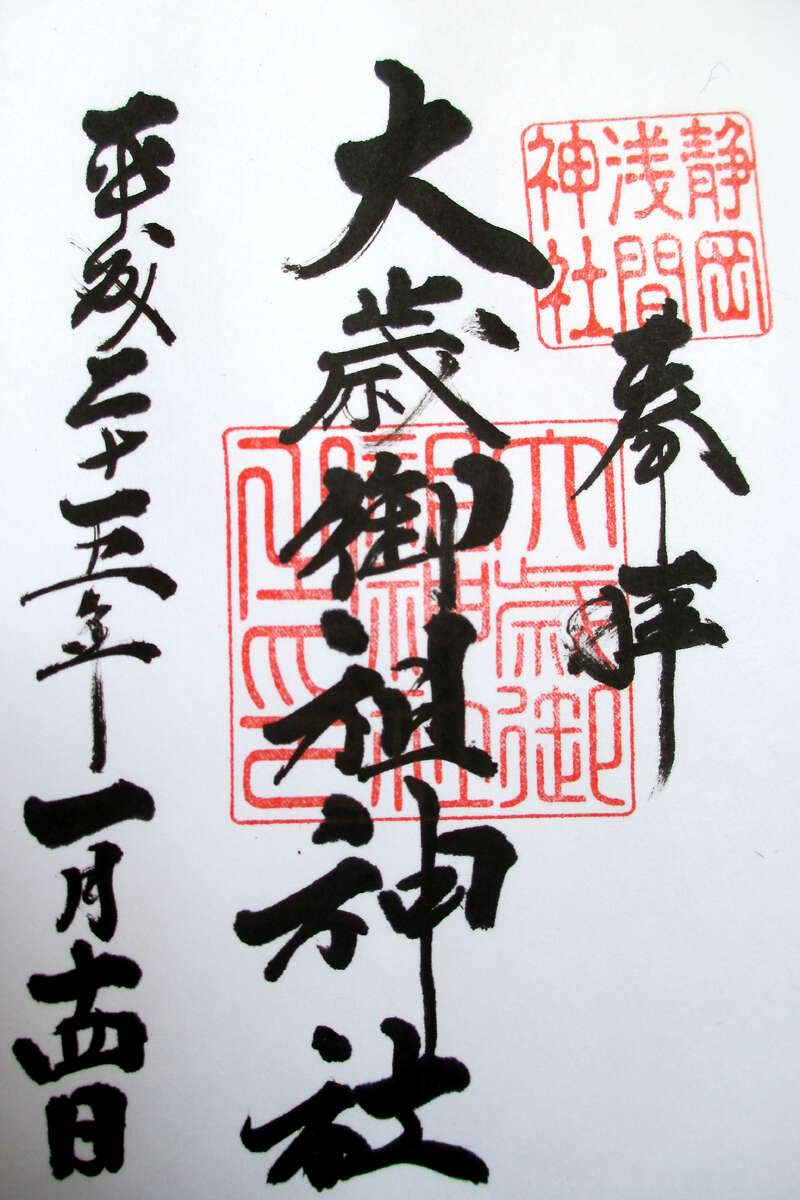 静岡
浅間
神社
奉拝
大歳御
祖神社
之印
大歳御祖神社
平成二十五年一月十四日